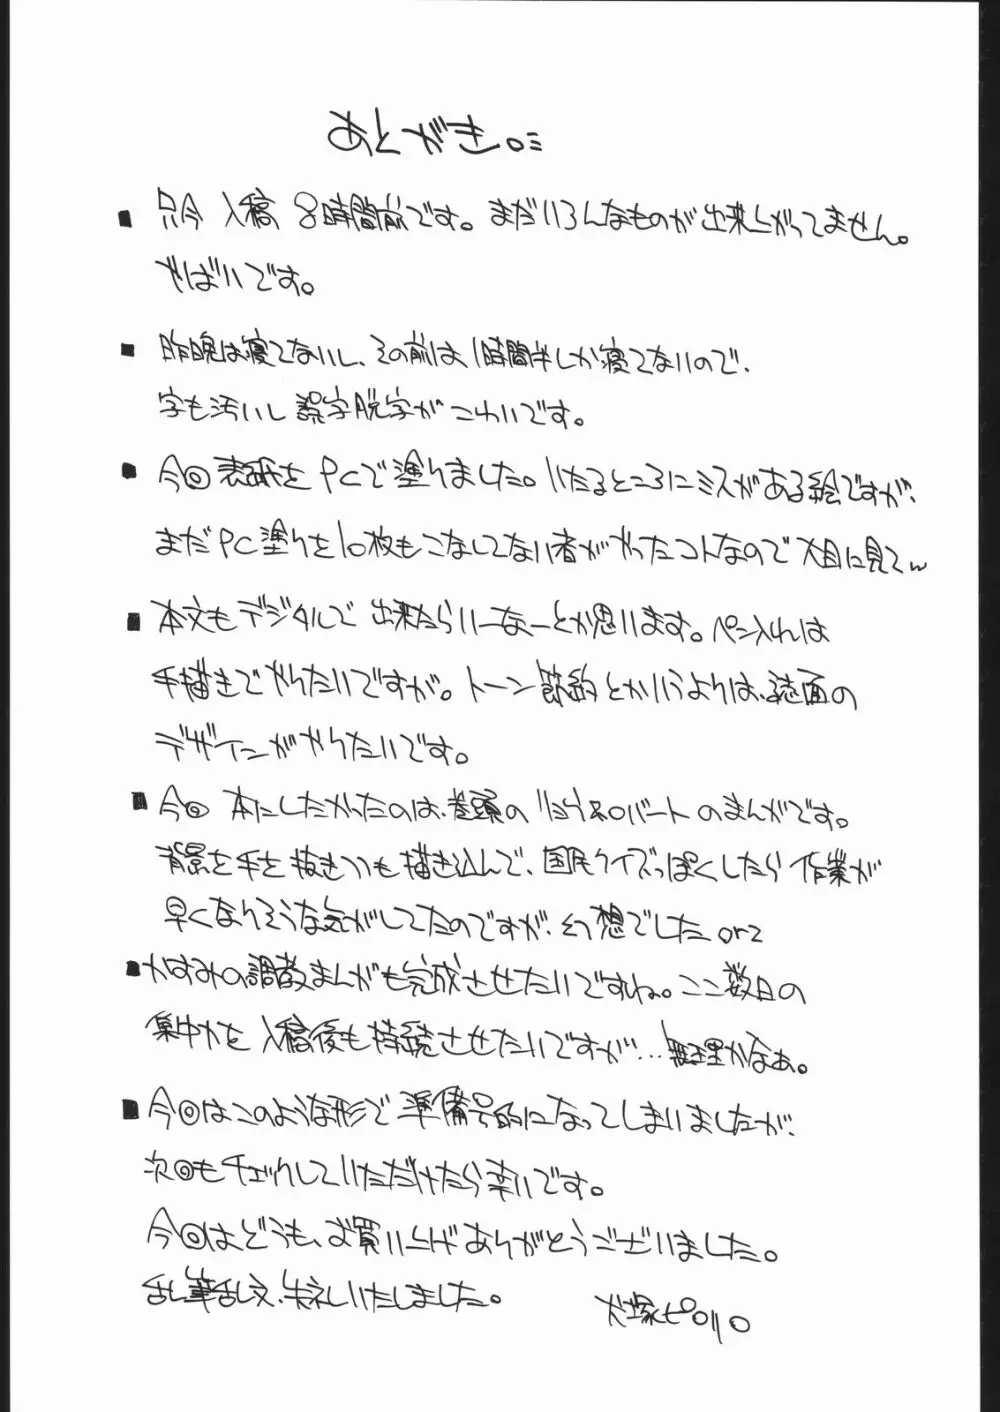 あとがき。
■ 只今 入稿 8時間前です。まだいろんなものが出来上がってません。
やばいです。
■ 昨晩は寝てないし、その前は1時間半しか寝てないので、
字も汚いし 誤字脱字がこわいです。
■ 今回表紙をPCで塗りました。いたるところにミスがある絵ですが、
まだPC塗りを10枚もこなしてない者がやったコトなので大目に見てw
■ 本文もデジタルで出来たらいーなーとか思います。ペン入れは
手描きでやりたいですが。トーン節約とかいうよりは、誌面の
デザインがやりたいです。
■ 今回 本にしたかったのは、巻頭の のまんがです。
背景を手を抜きつつも描き込んで、国民クイズっぽくしたら作業が
早くなりそうな気がしてたのですが、幻想でした orz
■ かすみの調教まんがも完成させたいですね。ここ数日の
集中力を入稿後も持続させたいですが…無理かなぁ。
■ 今回はこのような形で準備号的になってしまいましたが、
次回もチェックしていただけたら幸いです。
今回はどうも、お買い上げありがとうございました。
乱筆乱文、失礼いたしました。
犬塚ピロリロ